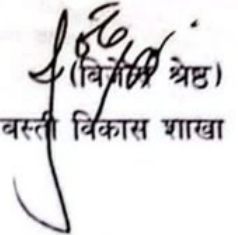 श्रेष्ठ)
बस्ती विकास शाखा